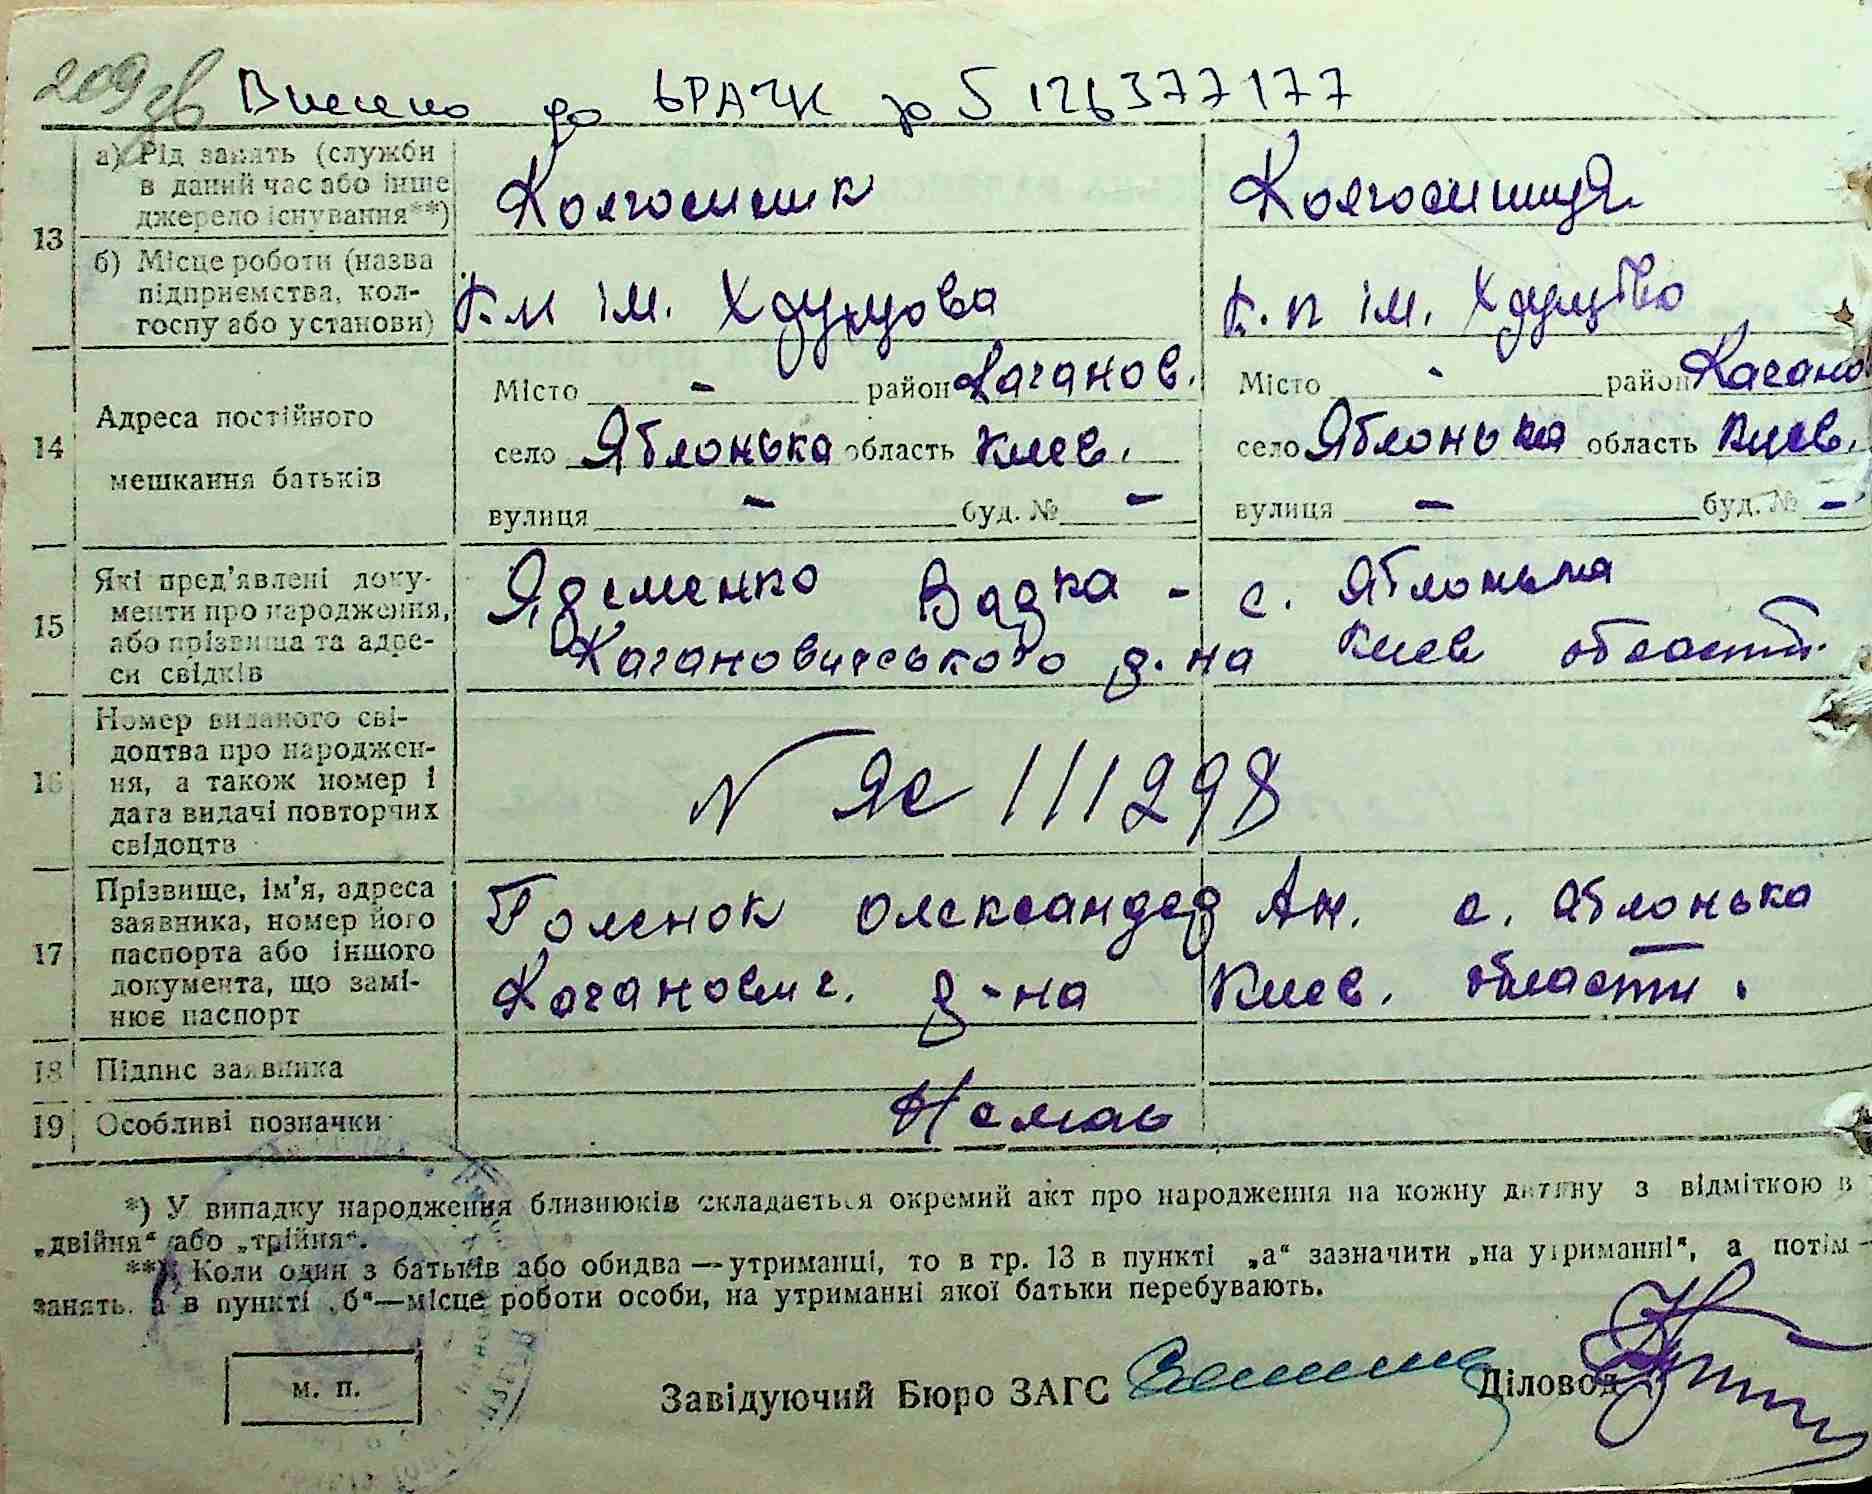 209зв Внесено до ЬРАЧК за № 126377177
13
а) Рід занять (служби в даний час або інше джерело існування**)
Колгоспник
Колгоспниця
б) Місце роботи (назва підприємства, колгоспу або установи)
К.п ім. Хрущова
К.п ім. Хрущова
14
Адреса постійного мешкання батьків
Місто - район Каганов.
село Яблонька область Киев.
вулиця - буд. № -
Місто - район Кагано
село Яблонька область Киев.
вулиця - буд. № -
15
Які пред'явлені документи про народження, або прізвища та адреси свідків
Яременко - с. Яблонька
Кагановичського р-на Киев области.
16
Номер виданого свідоцтва про народження, а також номер і дата видачі повторчих свідоцтв
N ЯС 111298
17
Прізвище, ім'я, адреса заявника, номер його паспорта або іншого документа, що замінює паспорт
Голенок Олександер Ан. с. Яблонька
Кагановмч. р-на Киев. области.
18
Підпис заявника
19
Особливі позначки
Немає
*) У випадку народження близнюків складається окремий акт про народження на кожну дитину з відміткою в
„двійня“ або „трійня“.
**) Коли один з батьків або обидва — утриманці, то в гр. 13 в пункті „а“ зазначити „на утриманні“, а потім —
занять, а в пункті „б“—місце роботи особи, на утриманні якої батьки перебувають.
М. П.
Завідуючий Бюро ЗАГС
Діловод